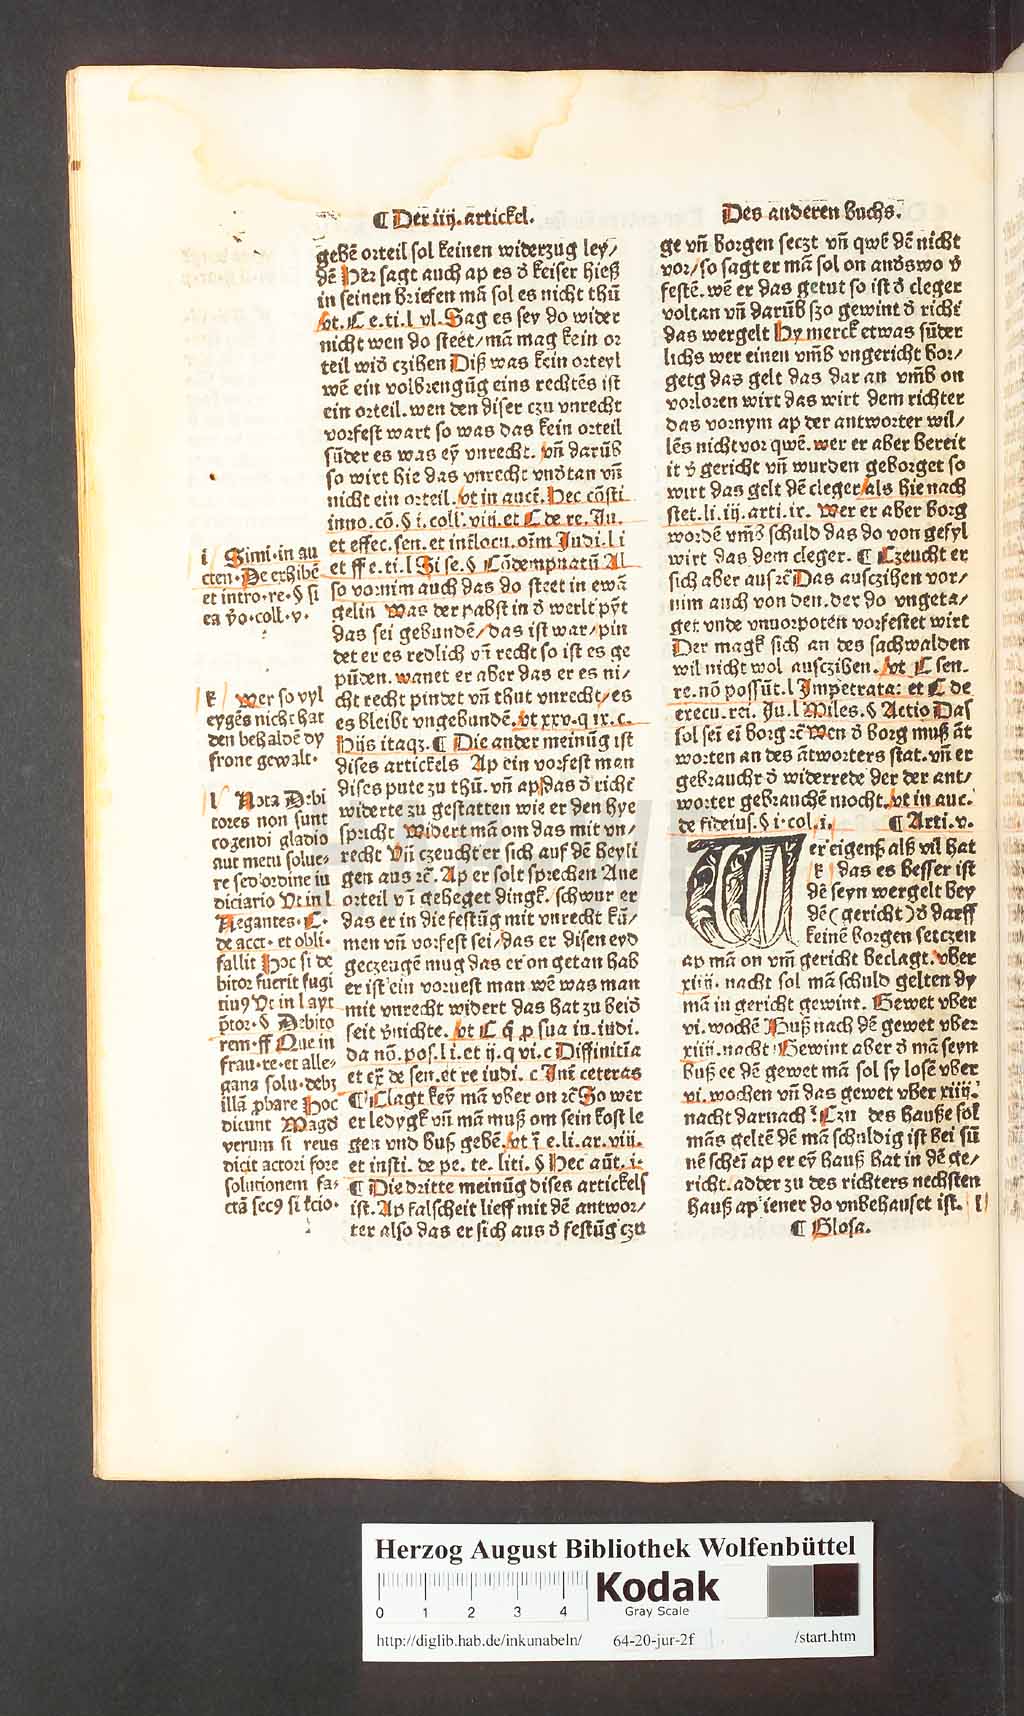 ¶ Der iiij. artickel.
gebē orteil sol keinen widerzug ley/
dē Her sagt auch ap es d̄ keiser hieß
in seinen briefen mā sol es nicht thū
vt. C e. ti. l vl. Sag es sey do wider
nicht wen do steet/ mā mag kein or
teil wid̄ czihen Diß was kein orteyl
wē ein volbrengūg eins rechtēs ist
ein orteil. wen den diser czu vnrecht
vorfest wart so was das kein orteil
sūder es was eȳ vnrecht. vn̄ darūb
so wirt hie das vnrecht vnd̄tan vn̄
nicht ein orteil. vt in auct̄. Hec cōsti
inno. cō. § i. coll'. viij. et C de re. Ju.
et effec. sen. et int̄locu. oīm Judi. l i
et ff e. ti. l Si se. § Cōdempnatū Al
so vornim auch das do steet in ewā
gelin Was der pabst in d̄ werlt pȳt
das sei gebundē/ das ist war/ pin
det er es redlich vn̄ recht so ist es ge
pūden. wanet er aber das er es ni/
cht recht pindet vn̄ thut vnrecht/ es
es bleibt vngebundē. vt xxv. q ix. c.
Hijs itaqʒ. ¶ Die ander meinūg ist
dises artickels Ap ein vorfest man
dises pute zu thū. vn̄ ap das d̄ richt̄
widerte zu gestatten wie er den hye
spricht Widert mā om das mit vn/
recht Vn̄ czeucht er sich auf dē heyli
gen aus rc̄. Ap er solt sprechen Ane
orteil vn̄ i geheget dingk. schwur er
das er in die festūg mit vnrecht kū/
men vn̄ vorfest sei/ das er disen eyd
geczeugē mug das er on getan hab
er ist ein voruest man wē was man
mit vnrecht widert das hat zu beid̄
seit v̄nichte. vt C q̄ p sua iu. iudi.
da nō. pos. l i. et ij. q vi. c Diffinitīa
et ex̄ de sen. et re iudi. c Int̄ ceteras
¶ Clagt keȳ mā vber on rc̄ So wer
er ledygk vn̄ mā muß om sein kost le
gen vnd buß gebē. vt ī e. li. ar. viij.
et insti. de pe. te. liti. § Hec aūt. i.
¶ Die dritte meinūg dises artickels
ist. Ap falscheit lieff mit dē antwor/
ter also das er sich aus d̄ festūg czu
i Simi. in au
cten. De exhibē
et intro. re. § si
ea v̄o. coll. v.
k Wer so vyl
eygēs nicht hat
den behaldē dy
frone gewalt.
l Nota Debi
tores non sunt
cogendi gladio
aut metu solue-
re sed ordine iu
diciario Vt in l
Negantes. C.
de acct. et obli.
fallit Hoc si de
bitor fuerit fugi
tiuꝰ Vt in l ayt
p̄tor. § Debito
rem. ff Que in
frau. re. et alle-
gans solu. debʒ
illā pbare Hoc
dicunt Magd
verum si reus
dicit actori fore
solutionem fa-
ctā secꝰ si kcio.
Des anderen buchs.
ge vn̄ borgen seczt vn̄ qwē dē nicht
vor/ so sagt er mā sol on and̄swo v̄
festē. wē er das getut so ist d̄ cleger
voltan vn̄ darūb szo gewint d̄ richt̄
das wergelt Hy merck etwas sūder
lichs wer einen vm̄b vngericht bor/
getg das gelt das dar an vm̄b on
vorloren wirt das wirt dem richter
das vornym ap der antworter wil/
lēs nicht vor qwē. wer er aber bereit
it v̄ gericht vn̄ wurden geborget so
wirt das gelt dē cleger als hie nach
stet. li. iij. arti. ix. Wer er aber borg
wordē vm̄b schuld das do von gefyl
wirt das dem cleger. ¶ Czeucht er
sich aber aus rc̄ Das ausczihen vor/
nim auch von den. der do vngeta/
get vnde vnuorpotēn vorfestet wirt
Der magk sich an des sachwalden
wil nicht wol ausczihen. vt C sen.
re. nō possūt. l Impetrata: et C de
execu. rei. Ju. l Miles. § Actio Das
sol sei ei borg rc̄ Wen d̄ borg muß āt
worten an des ātworters stat. vn̄ er
gebraucht d̄ widerrede der der ant/
worter gebrauchē mocht. vt in auc.
de fideius. § i. col. i. ¶ Arti. v.
Wer eigenß alß vil hat
k das es besser ist
dē seyn wergelt bey
dē (gericht) d̄ darff
keinē borgen setczen
ap mā on vm̄ gericht beclagt. vber
xiiij. nacht sol mā schuld gelten dy
mā in gericht gewint. Gewet vber
vi. wochē Buß nach dē gewet vber
xiiij. nacht Gewint aber d̄ mā seyn
buß ee dē gewet mā sol sy losē vber
vi. wochen vn̄ das gewet vber xiiij.
nacht darnach Czu des hauße sol
mās geltē dē mā schuldig ist bei sū
nē schei ap er eȳ hauß hat in dē ge/
richt. adder zu des richters nechsten
hauß ap iener do vnbehauset ist. l
¶ Glosa.
Herzog August Bibliothek Wolfenbüttel
0 1 2 3 4
Kodak
Gray Scale
http://diglib.hab.de/inkunabeln/ 64-20-jur-2f /start.htm